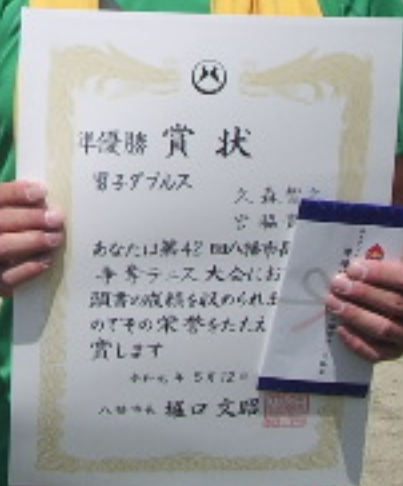 準優勝 賞状
男子ダブルス
久森
宮脇
あなたは第42回八幡市長
争奪テニス大会にお
頭書の成績を収められま
のでその栄誉をたたえ
賞します
令和元年5月12日
八幡市長 堀口文昭